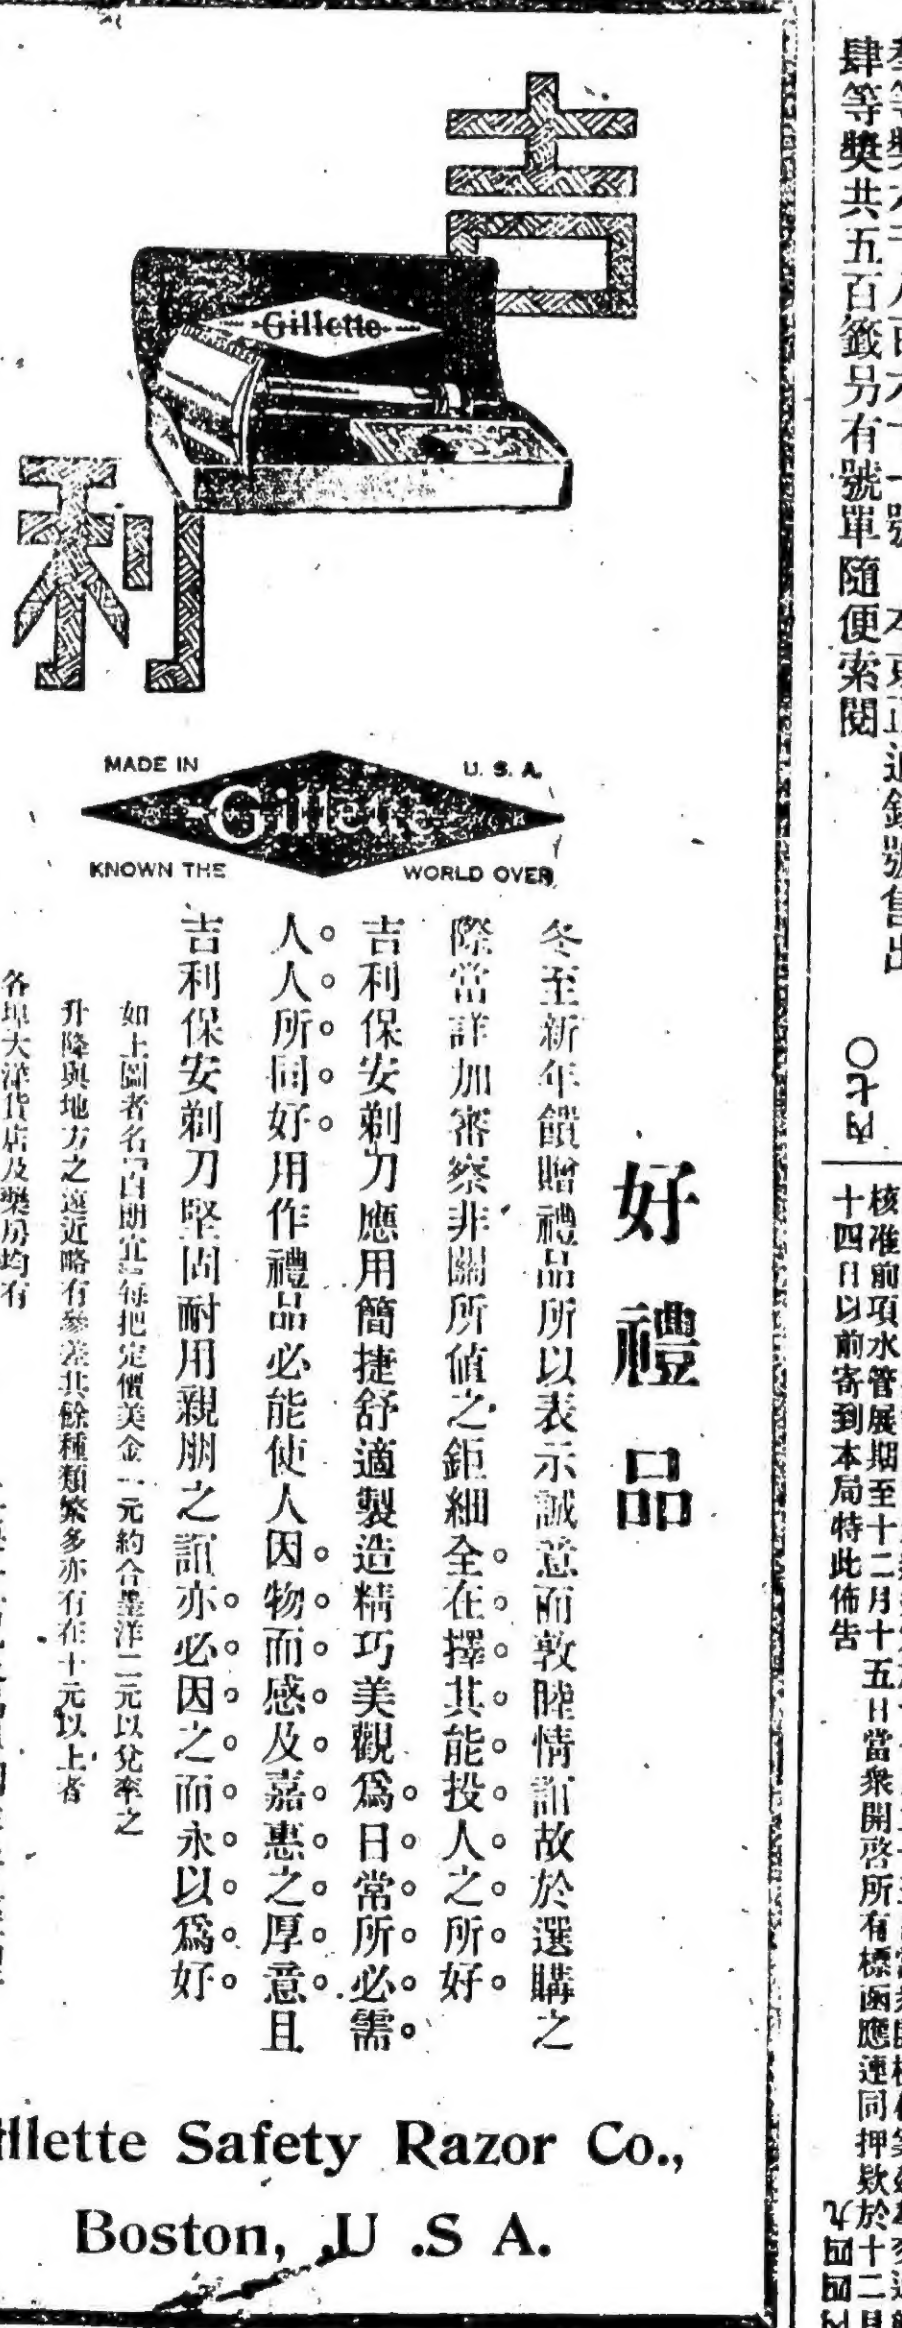 肆等獎共五百籤另有號單隨便索閱
內七〇
十四日以前寄到本局特此佈告
核准前項水管展期至十二月十五日當衆開啓所有標函應連同押欵於十二月
吉利
Gillette
MADE IN U. S. A.
Gillette
KNOWN THE WORLD OVER
好禮品
冬至新年饋贈禮品所以表示誠意而敦睦情誼故於選購之
際當詳加審察非關所値之鉅細全在擇其能投人之所好
吉利保安剃刀應用簡捷舒適製造精巧美觀爲日常所必需
人人所同好用作禮品必能使人因物而感及嘉惠之厚意且
吉利保安剃刀堅固耐用親朋之誼亦必因之而永以爲好
如上圖者名「白朗宜」每把定價美金一元約合墨洋二元以兌率之
升降與地方之遠近略有參差其餘種類繁多亦有在十元以上者
各埠大洋貨店及藥房均有
illette Safety Razor Co.,
Boston, U .S A.